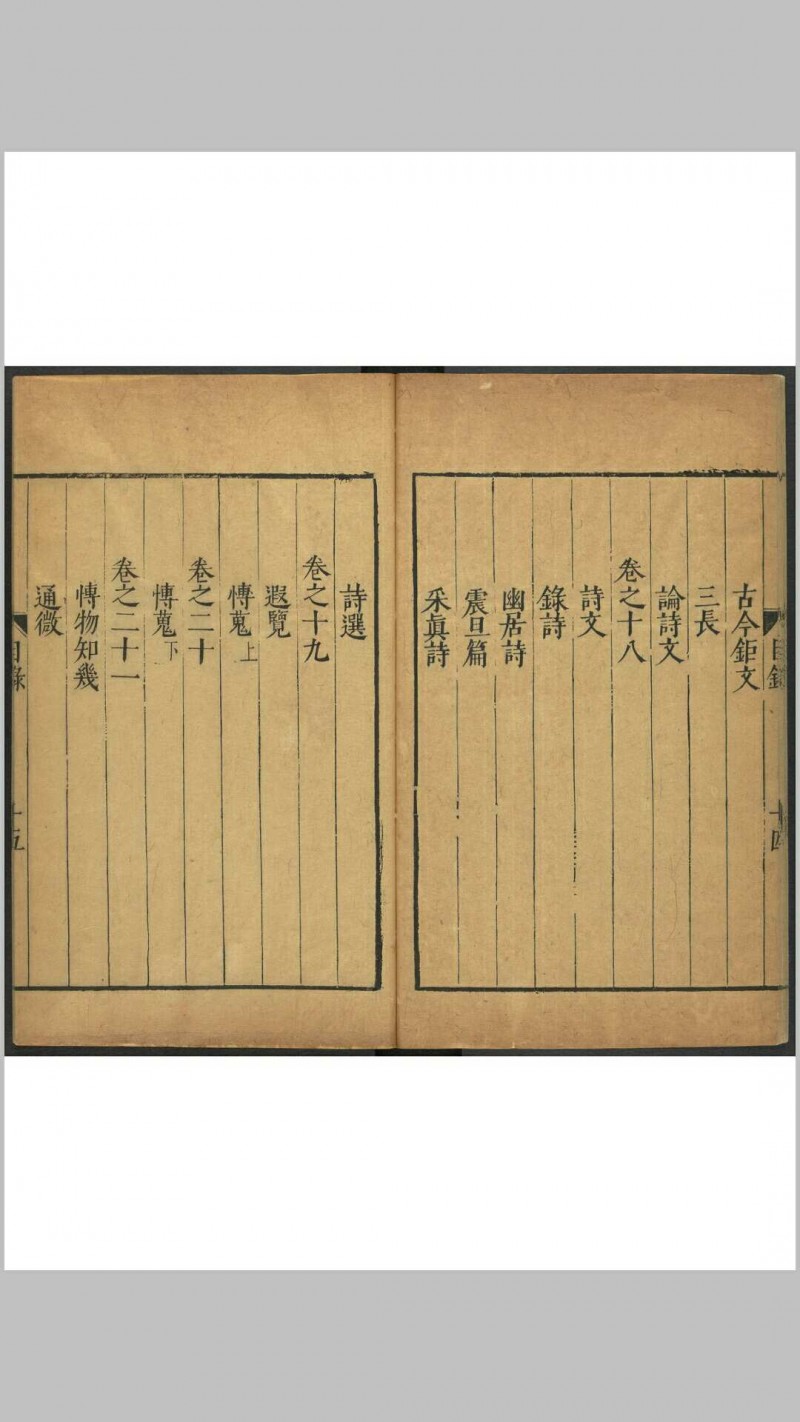 目錄
十四
古今鉅文
三長
論詩文
卷之十八
詩文
錄詩
幽居詩
震旦篇
采眞詩
詩選
卷之十九
遐覽
愽蒐上
卷之二十
愽蒐下
卷之二十一
愽物知幾
通微
目錄
十五